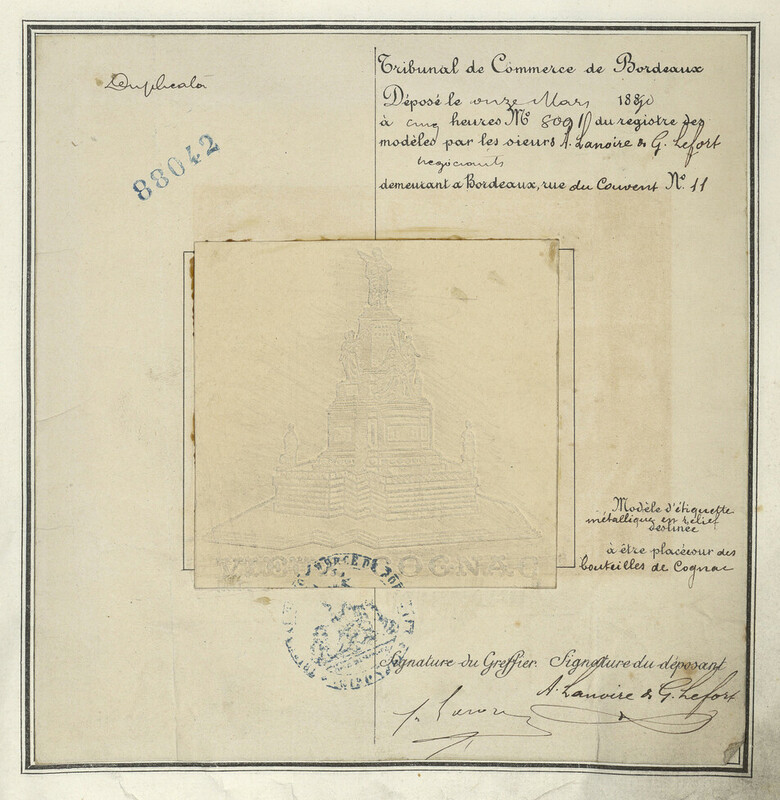 Duplicata
88042
Tribunal de Commerce de Bordeaux
Déposé le onze Mars 1890
à cinq heures Nº du registre des
modèles par les sieurs A. Lanoire & G. Lefort
négociants
demeurant a Bordeaux, rue du Couvent Nº 11
Modèle d'étiquette
métallique en relief
destinée
à être placée sur des
bouteilles de Cognac
Signature du Greffier. Signature du déposant
A. Lanoire & G. Lefort